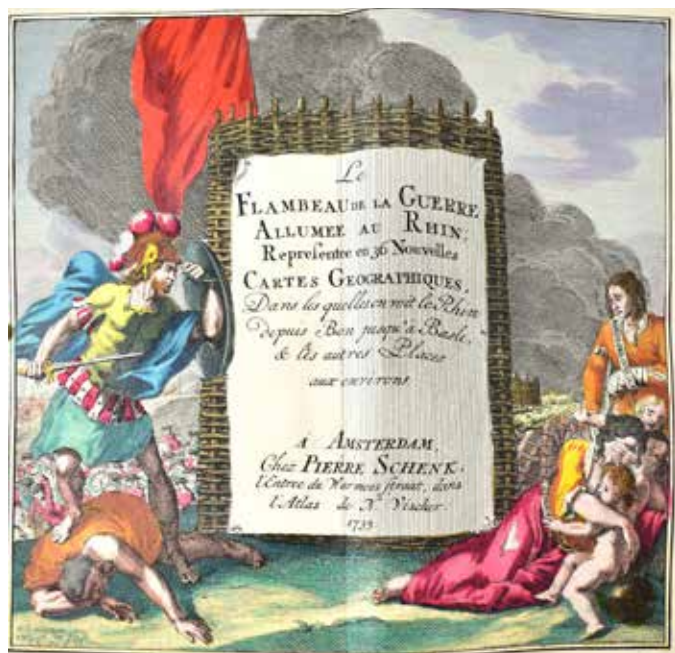 Le
FLAMBEAU DE LA GUERRE
ALLUMEE AU RHIN;
Representee en 36 Nouvelles
CARTES GEOGRAPHIQUES,
Dans les quelles on voit le Rhin
depuis Bon jusqu'à Basle,
& les autres Places
aux environs
A AMSTERDAM,
Chez PIERRE SCHENK,
l'Entree du Warmoes straat, dans
l'Atlas de N. Vischer.
1735